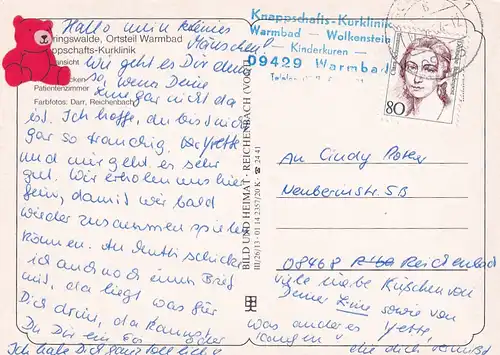 Hallo mein kleines
Mäuschen!
Wie geht es Dir denn
so, wenn Deine
gar nicht da
ist. Ich hoffe, du bist nicht
gar so traurig. Yvette
und mir geht es sehr
gut. Wir erholen uns hier
fein, damit wir bald
wieder zusammen spielen
können. An Mutti schicke
ich auch noch einen Brief
mit, da liegt was für
Dich drin, da kannst
Du Dir ein Eis oder
was anderes
Ich habe Dich ganz toll lieb
viele liebe Küßchen von
Deiner sowie von
Yvette,
die dich vermißt
ringswalde, Ortsteil Warmbad
appschafts-Kurklinik
ansicht
Patientenzimmer
Farbfotos: Darr, Reichenbach
BILD UND HEIMAT · REICHENBACH (VOGTL)
III/26/13 · 01 14 2357/20 K ☎ 24 41
Knappschafts-Kurklinik
Warmbad - Wolkenstein
- Kinderkuren -
09429 Warmbad
80
An Cindy
08468 Reichenbach